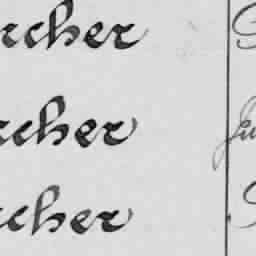 rcher
rcher
rcher